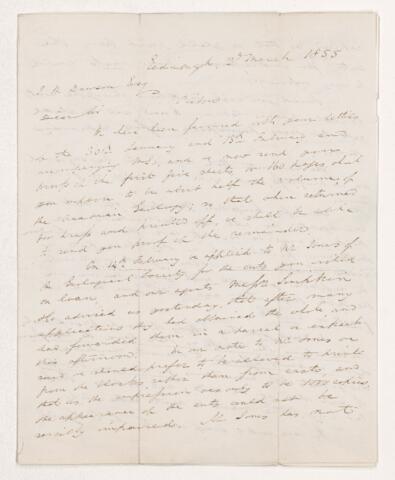 Edinburgh, 2d March 1855
J. W. Dawson Esq
Pictou
Dear Sir
We have been favored with your letters
of the 30th January and 13th February and
accompanying M.S., and we now send you
proofs of the first five sheets, or 160 pages what
you suppose to be about half the volume, of
the Acadian Geology; so that when returned
for press and printed off, we shall be able
to send you proof of the remainder.
On 14th February we applied to Mr Jones of
the Geological Society for the cuts you wished
on loan, and our agents Messrs Simpkin
&co advised us yesterday that after many
applications they had obtained the whole, and
had forwarded them in a parcel we expect
this afternoon. In our note to Mr Jones we
said we should prefer to be allowed to print
from the blocks rather than from casts, and
that as the impression was only to be 1000 copies,
the appearance of the cuts could not be
visibly impaired. Mr Jones has not